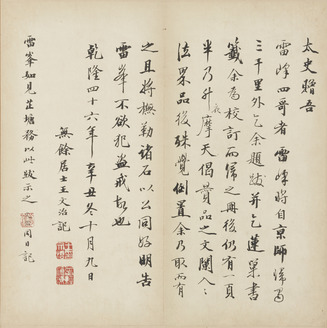 太史贈吾
雷峰四哥者雷峰將自京師歸蜀
三千里外乞余題跋并乞蓬巢書
籤余為校訂而歸之冊後仍有一頁
半乃升摩天偈贊品之文闌入
法界品後殊覺倒置余乃取而有
之且將橅勒諸石以公同好明告
雷峯不欲犯盜戒故也
乾隆四十六年辛丑冬十月九日
無餘居士王文治記
雷峯如見芷塘務以此跋示之
同日記